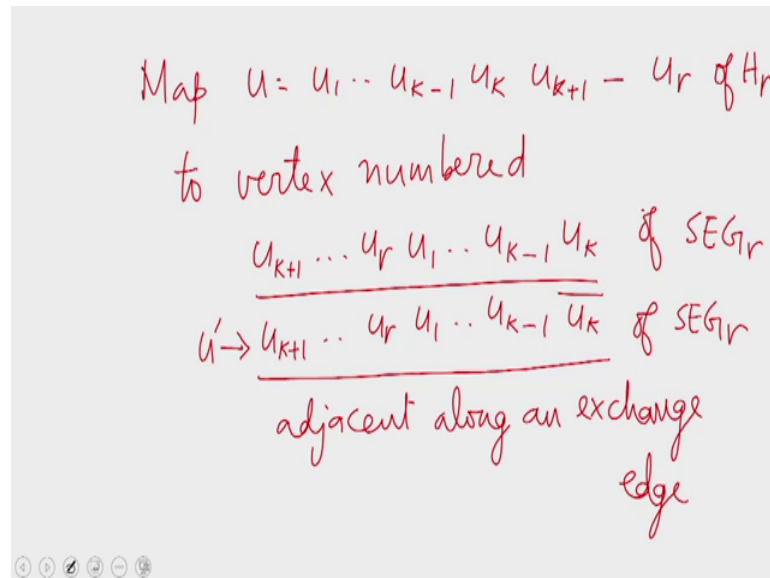 Map u = u₁ .. uₖ₋₁ uₖ uₖ₊₁ – uᵣ of Hᵣ
to vertex numbered
uₖ₊₁ ... uᵣ u₁ .. uₖ₋₁ uₖ of SEGᵣ
u' → uₖ₊₁ .. uᵣ u₁ .. uₖ₋₁ u̅ₖ of SEGᵣ
adjacent along an exchange
edge